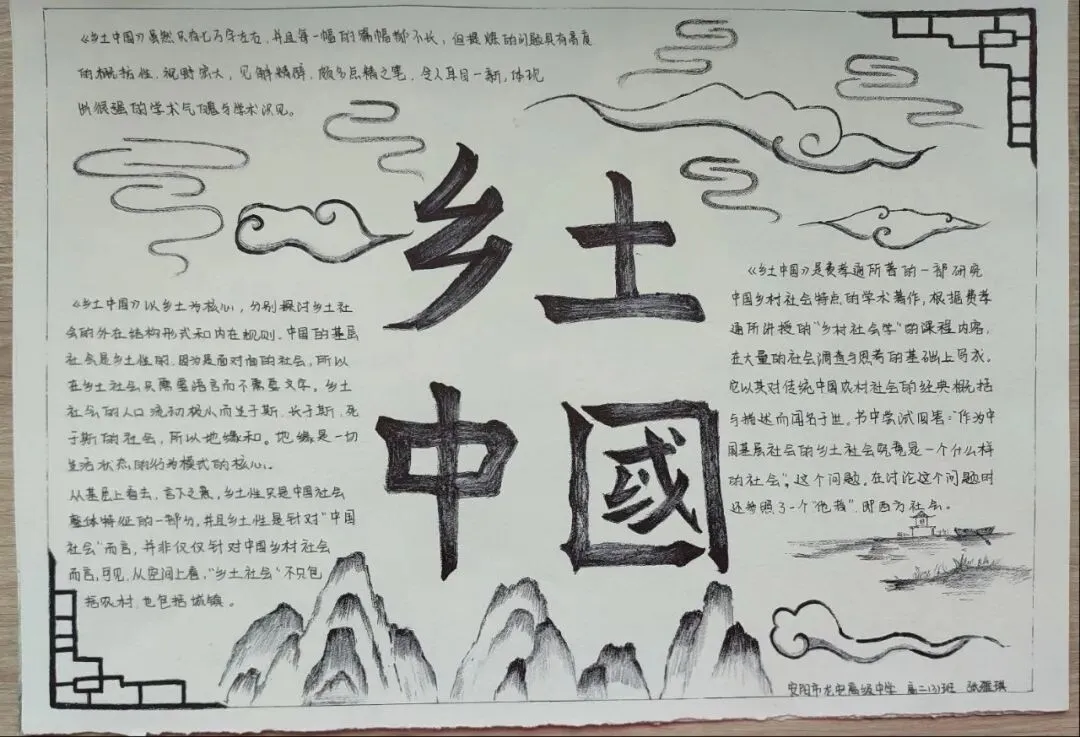 《乡土中国》虽然只有七万字左右，并且每一幅的篇幅都不长，但提炼的问题具有高度
的概括性，视野宏大，见解精辟，颇多点精之笔，令人耳目一新，体现
出很强的学术气魄与学术沉见。
乡土
中國
《乡土中国》以乡土为核心，分别探讨乡土社
会的外在结构形式和内在规则。中国的基层
社会是乡土性的，因为是面对面的社会，所以
在乡土社会只需要语言而不需要文字。乡土
社会的人口流动核心而生于斯、长于斯、死
于斯的社会，所以地缘和。地缘是一切
生活状态的行为模式的核心。
从基层上看去，言下之意，乡土性只是中国社会
整体特征的一部分，并且乡土性是针对"中国
社会"而言，并非仅仅针对中国乡村社会
而言，可见，从空间上看，"乡土社会"不只包
括农村，也包括城镇。
《乡土中国》是费孝通所著的一部研究
中国乡村社会特点的学术著作，根据费孝
通所讲授的"乡村社会学"的课程内容，
在大量的社会调查与思考的基础上写成，
它以其对传统中国农村社会的经典概括
与描述而闻名于世。书中尝试回答："作为中
国基层社会的乡土社会既竟是一个什么样
的社会"，这个问题，在讨论这个问题时
还参照了一个"他我"，即西方社会。
安阳市龙安高级中学 高二(3)班 张雅琪